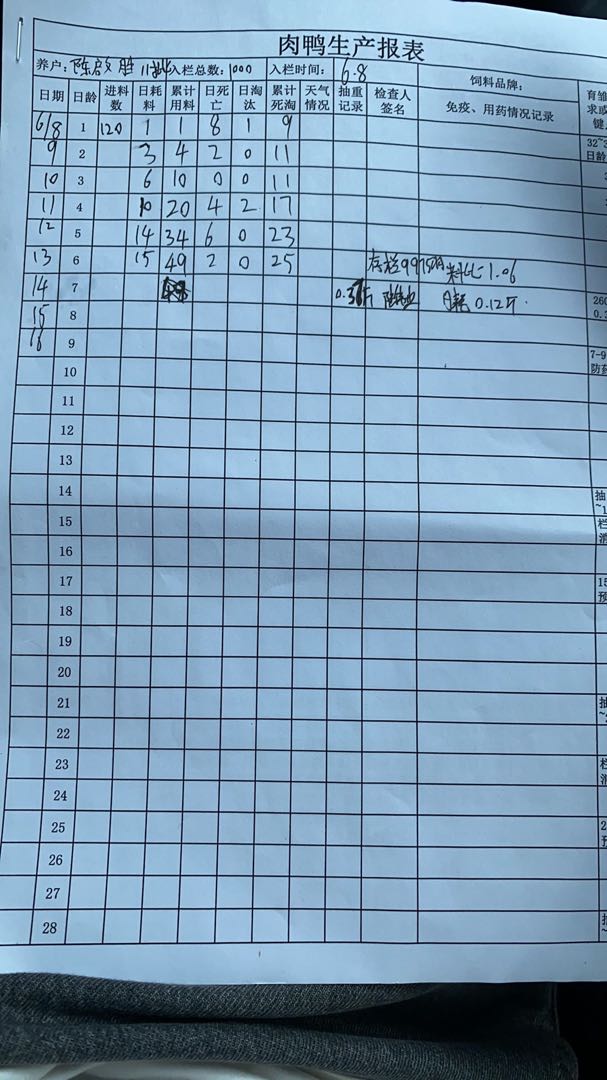 肉鸭生产报表
养户: 陈啟胜 11批 入栏总数: 1000 入栏时间: 6.8 饲料品牌:
日期 日龄 进料数 日耗料 累计用料 日死亡 日淘汰 累计死淘 天气情况 抽重记录 检查人签名 免疫、用药情况记录
6/8 1 120 1 1 8 1 9
9 2 3 4 2 0 11 32~3
日龄
10 3 6 10 0 0 11
11 4 10 20 4 2 17
12 5 14 34 6 0 23
13 6 15 49 2 0 25 存栏9975只 料比1.06
14 7 0.3斤 日耗0.12斤 260
0.3
15 8
16 9 7-9
防药
10
11
12
13
14 抽
~1
15 栏
消
16
17 15
预
18
19
20
21 抽
22
23 栏
消
24
25 2
预
26
27
28